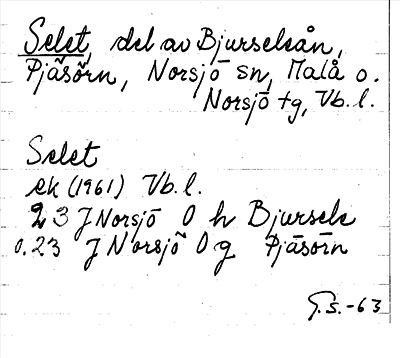 Selet, del av Bjurselsån,
Pjäsörn, Norsjö sn, Malå o.
Norsjö tg, Vb. l.
Selet
ek (1961) Vb. l.
23 J Norsjö 0 h Bjursele
o. 23 J Norsjö 0 g Pjäsörn
G.S. -63